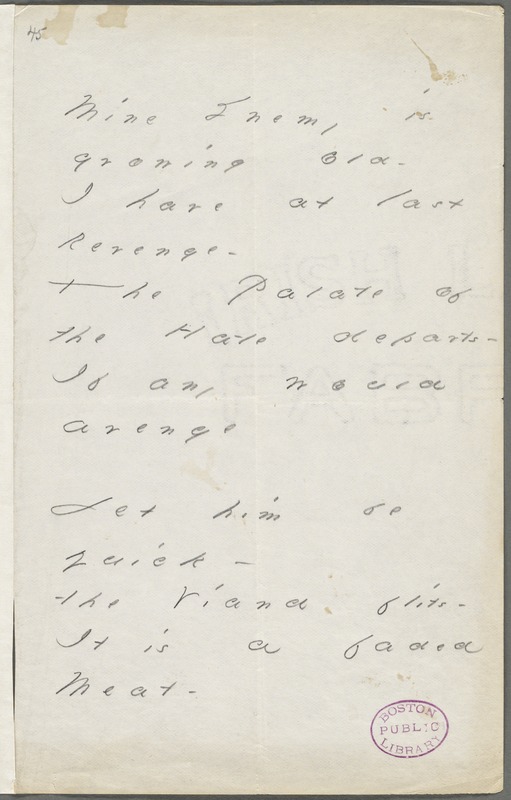 45
Mine Enemy is
growing old -
I have at last
Revenge -
The Palate of
the Hate departs -
If any would
avenge
Let him be
quick -
the Viand flits -
It is a faded
Meat -
BOSTON
PUBLIC
LIBRARY